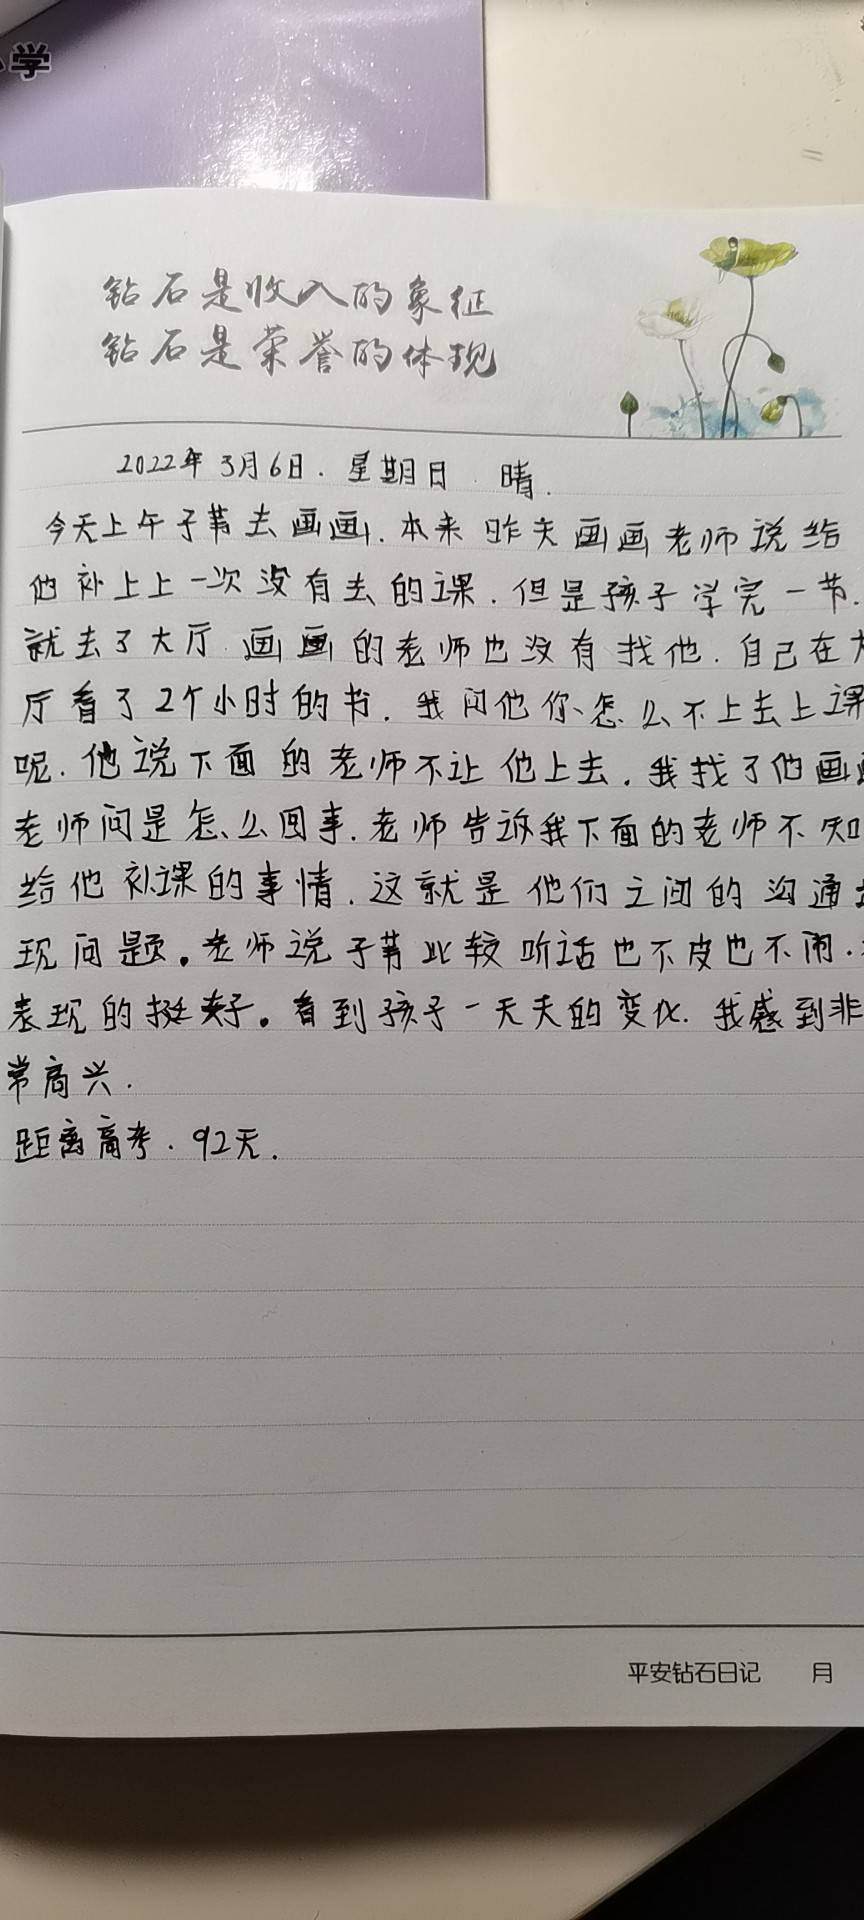 小学
钻石是收入的象征
钻石是荣誉的体现
2022年3月6日. 星期日 晴.
今天上午子苒去画画. 本来昨天画画老师说给
他补上上一次没有去的课. 但是孩子学完一节.
就去了大厅 画画的老师也没有找他. 自己在大
厅看了2个小时的书. 我问他你怎么不上去上课
呢. 他说下面的老师不让他上去. 我找了他画画
老师问是怎么回事. 老师告诉我下面的老师不知
给他补课的事情. 这就是他们之间的沟通
现问题。老师说子苒比较听话也不皮也不闹.
表现的挺好。看到孩子一天天的变化. 我感到非
常高兴.
距离高考. 92天.
平安钻石日记 月